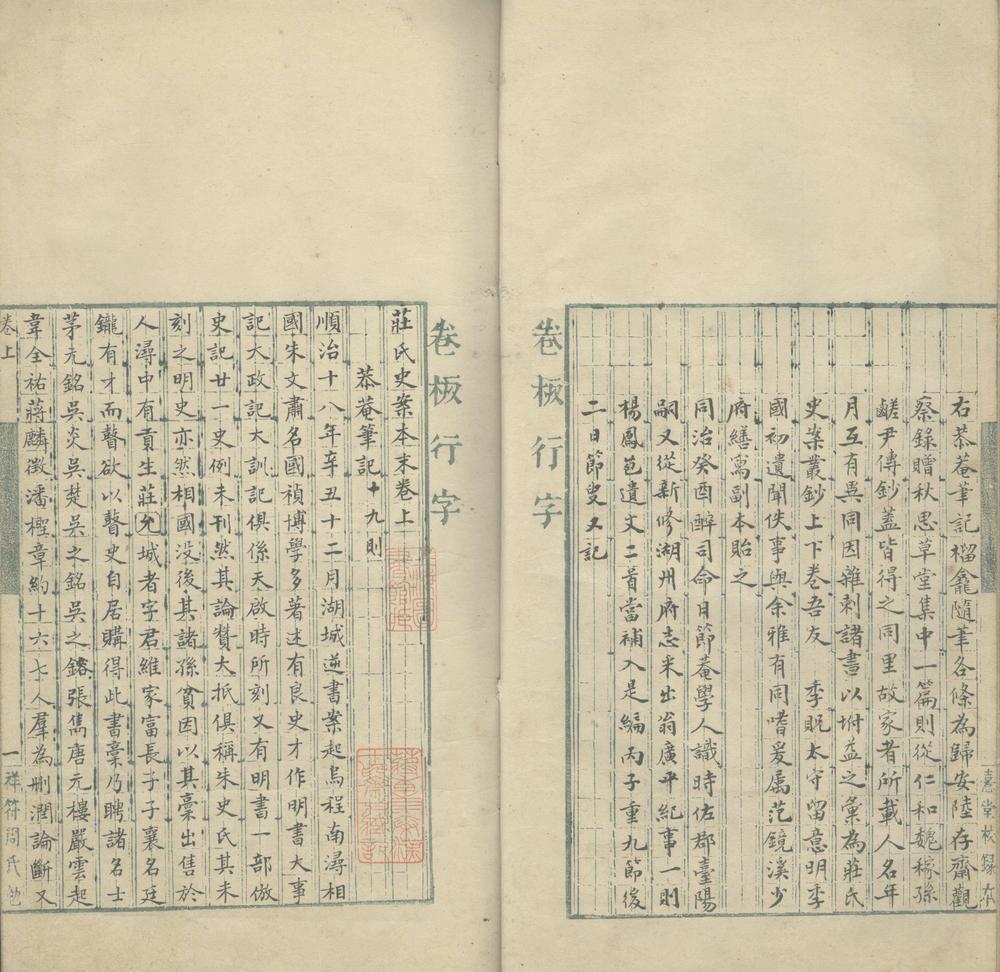 右恭菴筆記榴龕隨筆各條為歸安陸存齋觀
察錄贈秋思草堂集中一篇則從仁和魏稼孫
鹺尹傳鈔蓋皆得之同里故家者所載人名年
月互有異同因雜刺諸書以坿益之彙為莊氏
史案叢鈔上下卷吾友 季貺太守留意明季
國初遺聞佚事與余雅有同嗜爰属范鏡溪少
府繕寫副本貽之
同治癸酉醉司命日節菴學人識時佐郡臺陽
嗣又從新修湖州府志采出翁廣平紀事一則
楊鳳苞遺文二首當補入是編丙子重九節後
二日節叟又記
卷板行字
卷板行字
莊氏史案本末卷上
恭菴筆記十九則
順治十八年辛丑十二月湖城逆書案起烏程南潯相
國朱文肅名國禎博學多著述有良史才作明書大事
記大政記大訓記俱係天啟時所刻又有明書一部倣
史記廿一史例未刊然其論贊大抵俱稱朱史氏其未
刻之明史亦然相國没後其諸孫貧因以其稾出售於
人潯中有貢生莊允城者字君維家富長子子襄名廷
鑨有才而瞽欲以瞽史自居購得此書稾乃聘諸名士
茅元銘吳炎吳楚吳之銘吳之鎔張雋唐元樓嚴雲起
韋全祐蔣麟徵潘檉章約十六七人羣為刪潤論斷又
卷上
一祥符周氏